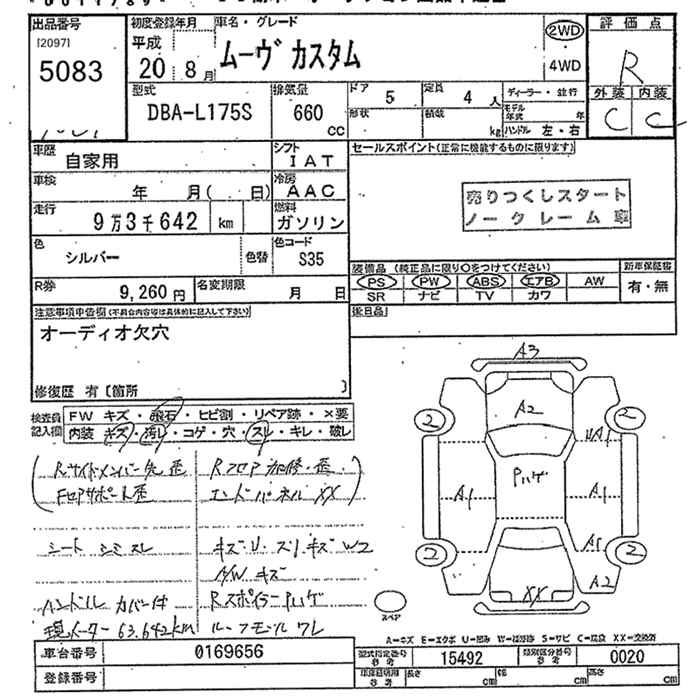 出品番号
[2097]
5083
初度登録年月
平成
20年 8月
車名・グレード
ムーヴ カスタム
2WD
4WD
評価点
R
外装 内装
C C
型式
DBA-L175S
排気量
660
CC
ドア 5
定員 4人
形状
積載 kg
ディーラー・並行
モデル年式 年
ハンドル 左・右
車歴
自家用
シフト
IAT
車検
年 月( 日)
冷房
AAC
走行
9万3千642 km
燃料
ガソリン
色
シルバー
色替
色コード
S35
R券
9,260円
名変期限
月 日
セールスポイント(正常に機能するものに限ります)
売りつくしスタート
ノークレーム車
装備品 (純正品に限り○をつけてください)
新車保証書
PS PW ABS エアB AW
SR ナビ TV カワ
有・無
後日品
注意事項申告欄(不具合内容等は具体的に記入して下さい)
オーディオ欠穴
修復歴 有〔箇所 〕
検査員記入欄
FW キズ・飛石・ヒビ割・リペア跡・×要
内装 キズ・汚レ・コゲ・穴・スレ・キレ・破レ
Rサイドメンバー先歪
Rフロア加修・歪
Fコアサポート歪
エンドパネルXX
シート シミ スレ
キズ・U・スリキズ W2
A/W キズ
ハンドルカバー付
Rスポイラー Pハゲ
現メーター 63.642km
ルーフモール ワレ
A3
2 A2 2
UA1
Pハゲ
A1 A1
A1
2 2
XX A2
スペア
A=キズ E=エクボ U=凹み W=補修跡 S=サビ C=腐蝕 XX=交換済
車台番号 0169656
登録番号
型式指定番号 参考 15492
類別区分番号 参考 0020
車庫証明用 参考
長さ cm
幅 cm
高さ cm